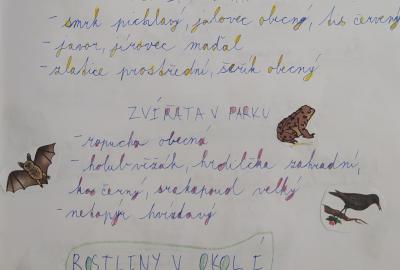 - smrk pichlavý, jalovec obecný, tis červený
- javor, jírovec maďal
- zlatice prostřední, šeřík obecný
ZVÍŘATA V PARKU
- ropucha obecná
- holub věžák, hrdlička zahradní,
kos černý, strakapoud velký
- netopýr hvízdavý
ROSTLINY V OKOLÍ